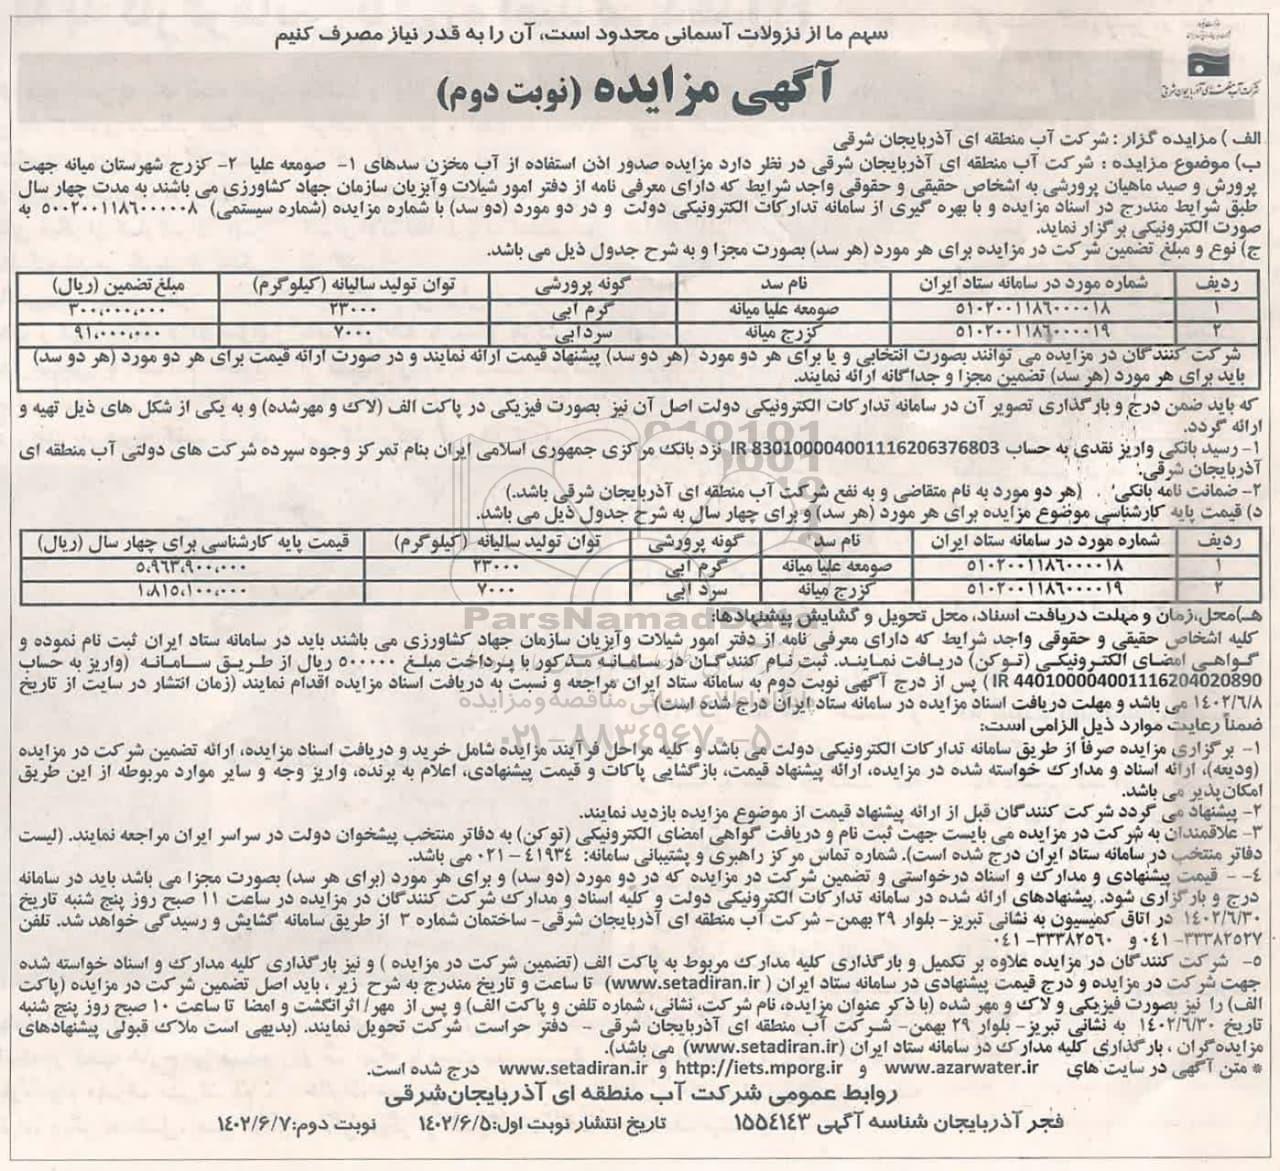 سهم ما از نزولات آسمانی محدود است، آن را به قدر نیاز مصرف کنیم
شرکت آب منطقه‌ای آذربایجان شرقی
آگهی مزایده (نوبت دوم)
الف ) مزایده گزار : شرکت آب منطقه ای آذربایجان شرقی
ب) موضوع مزایده : شرکت آب منطقه ای آذربایجان شرقی در نظر دارد مزایده صدور اذن استفاده از آب مخزن سدهای ۱- صومعه علیا ۲- کزرج شهرستان میانه جهت
پرورش و صید ماهیان پرورشی به اشخاص حقیقی و حقوقی واجد شرایط که دارای معرفی نامه از دفتر امور شیلات وآبزیان سازمان جهاد کشاورزی می باشند به مدت چهار سال
طبق شرایط مندرج در اسناد مزایده و با بهره گیری از سامانه تدارکات الکترونیکی دولت و در دو مورد (دو سد) با شماره مزایده (شماره سیستمی) ۵۰۰۲۰۰۱۱۸۶۰۰۰۰۰۸ به
صورت الکترونیکی برگزار نماید.
ج) نوع و مبلغ تضمین شرکت در مزایده برای هر مورد (هر سد) بصورت مجزا و به شرح جدول ذیل می باشد.
ردیف شماره مورد در سامانه ستاد ایران نام سد گونه پرورشی توان تولید سالیانه (کیلوگرم) مبلغ تضمین (ریال)
۱ ۵۱۰۲۰۰۱۱۸۶۰۰۰۰۱۸ صومعه علیا میانه گرم آبی ۲۳۰۰۰ ۳۰۰,۰۰۰,۰۰۰
۲ ۵۱۰۲۰۰۱۱۸۶۰۰۰۰۱۹ کزرج میانه سردآبی ۷۰۰۰ ۹۱,۰۰۰,۰۰۰
شرکت کنندگان در مزایده می توانند بصورت انتخابی و یا برای هر دو مورد (هر دو سد) پیشنهاد قیمت ارائه نمایند و در صورت ارائه قیمت برای هر دو مورد (هر دو سد)
باید برای هر مورد (هر سد) تضمین مجزا و جداگانه ارائه نمایند.
که باید ضمن درج و بارگذاری تصویر آن در سامانه تدارکات الکترونیکی دولت اصل آن نیز بصورت فیزیکی در پاکت الف (لاک و مهرشده) و به یکی از شکل های ذیل تهیه و
ارائه گردد.
۱- رسید بانکی واریز نقدی به حساب IR 830100004001116206376803 نزد بانک مرکزی جمهوری اسلامی ایران بنام تمرکز وجوه سپرده شرکت های دولتی آب منطقه ای
آذربایجان شرقی.
۲- ضمانت نامه بانکی . (هر دو مورد به نام متقاضی و به نفع شرکت آب منطقه ای آذربایجان شرقی باشد.)
د) قیمت پایه کارشناسی موضوع مزایده برای هر مورد (هر سد) و برای چهار سال به شرح جدول ذیل می باشد.
ردیف شماره مورد در سامانه ستاد ایران نام سد گونه پرورشی توان تولید سالیانه (کیلوگرم) قیمت پایه کارشناسی برای چهار سال (ریال)
۱ ۵۱۰۲۰۰۱۱۸۶۰۰۰۰۱۸ صومعه علیا میانه گرم آبی ۲۳۰۰۰ ۵,۹۶۳,۹۰۰,۰۰۰
۲ ۵۱۰۲۰۰۱۱۸۶۰۰۰۰۱۹ کزرج میانه سرد آبی ۷۰۰۰ ۱,۸۱۵,۱۰۰,۰۰۰
ParsNamadData
هـ)محل،زمان و مهلت دریافت اسناد، محل تحویل و گشایش پیشنهادها:
کلیه اشخاص حقیقی و حقوقی واجد شرایط که دارای معرفی نامه از دفتر امور شیلات وآبزیان سازمان جهاد کشاورزی می باشند باید در سامانه ستاد ایران ثبت نام نموده و
گواهی امضای الکترونیکی (توکن) دریافت نمایند. ثبت نام کنندگان در سامانه مذکور با پرداخت مبلغ ۵۰۰۰۰۰ ریال از طریق سامانه (واریز به حساب
IR 440100004001116204020890 ) پس از درج آگهی نوبت دوم به سامانه ستاد ایران مراجعه و نسبت به دریافت اسناد مزایده اقدام نمایند (زمان انتشار در سایت از تاریخ
۱۴۰۲/۶/۸ می باشد و مهلت دریافت اسناد مزایده در سامانه ستاد ایران درج شده است)
پایگاه اطلاع رسانی مناقصه و مزایده
ضمناً رعایت موارد ذیل الزامی است:
۰۲۱-۸۸۳۴۹۶۷۰-۵
۱- برگزاری مزایده صرفاً از طریق سامانه تدارکات الکترونیکی دولت می باشد و کلیه مراحل فرآیند مزایده شامل خرید و دریافت اسناد مزایده، ارائه تضمین شرکت در مزایده
(ودیعه)، ارائه اسناد و مدارک خواسته شده در مزایده، ارائه پیشنهاد قیمت، بازگشایی پاکات و قیمت پیشنهادی، اعلام به برنده، واریز وجه و سایر موارد مربوطه از این طریق
امکان‌پذیر می باشد.
۲- پیشنهاد می گردد شرکت کنندگان قبل از ارائه پیشنهاد قیمت از موضوع مزایده بازدید نمایند.
۳- علاقمندان به شرکت در مزایده می بایست جهت ثبت نام و دریافت گواهی امضای الکترونیکی (توکن) به دفاتر منتخب پیشخوان دولت در سراسر ایران مراجعه نمایند. (لیست
دفاتر منتخب در سامانه ستاد ایران درج شده است). شماره تماس مرکز راهبری و پشتیبانی سامانه: ۴۱۹۳۴ – ۰۲۱ می باشد.
۴- - قیمت پیشنهادی و مدارک و اسناد درخواستی و تضمین شرکت در مزایده که در دو مورد (دو سد) و برای هر مورد (برای هر سد) بصورت مجزا می باشد باید در سامانه
درج و بارگزاری شود. پیشنهادهای ارائه شده در سامانه تدارکات الکترونیکی دولت و کلیه اسناد و مدارک شرکت کنندگان در مزایده در ساعت ۱۱ صبح روز پنج شنبه تاریخ
۱۴۰۲/۶/۳۰ در اتاق کمیسیون به نشانی تبریز- بلوار ۲۹ بهمن- شرکت آب منطقه ای آذربایجان شرقی- ساختمان شماره ۳ از طریق سامانه گشایش و رسیدگی خواهد شد. تلفن
۳۳۳۸۲۵۲۷–۰۴۱ و ۳۳۳۸۲۵۶۰–۰۴۱
۵- شرکت کنندگان در مزایده علاوه بر تکمیل و بارگذاری کلیه مدارک مربوط به پاکت الف (تضمین شرکت در مزایده ) و نیز بارگذاری کلیه مدارک و اسناد خواسته شده
جهت شرکت در مزایده و درج قیمت پیشنهادی در سامانه ستاد ایران ( www.setadiran.ir) تا ساعت و تاریخ مندرج به شرح زیر ، باید اصل تضمین شرکت در مزایده (پاکت
الف) را نیز بصورت فیزیکی و لاک و مهر شده (با ذکر عنوان مزایده، نام شرکت، نشانی، شماره تلفن و پاکت الف) و پس از مهر/ اثرانگشت و امضا تا ساعت ۱۰ صبح روز پنج شنبه
تاریخ ۱۴۰۲/۶/۳۰ به نشانی تبریز- بلوار ۲۹ بهمن- شرکت آب منطقه ای آذربایجان شرقی - دفتر حراست شرکت تحویل نمایند. (بدیهی است ملاک قبولی پیشنهادهای
مزایده‌گران ، بارگذاری کلیه مدارک در سامانه ستاد ایران (www.setadiran.ir) می باشد).
* متن آگهی در سایت های www.azarwater.ir و http://iets.mporg.ir و www.setadiran.ir درج شده است.
روابط عمومی شرکت آب منطقه ای آذربایجان‌شرقی
فجر آذربایجان شناسه آگهی ۱۵۵۴۱۴۳ تاریخ انتشار نوبت اول:۱۴۰۲/۶/۵ نوبت دوم:۱۴۰۲/۶/۷